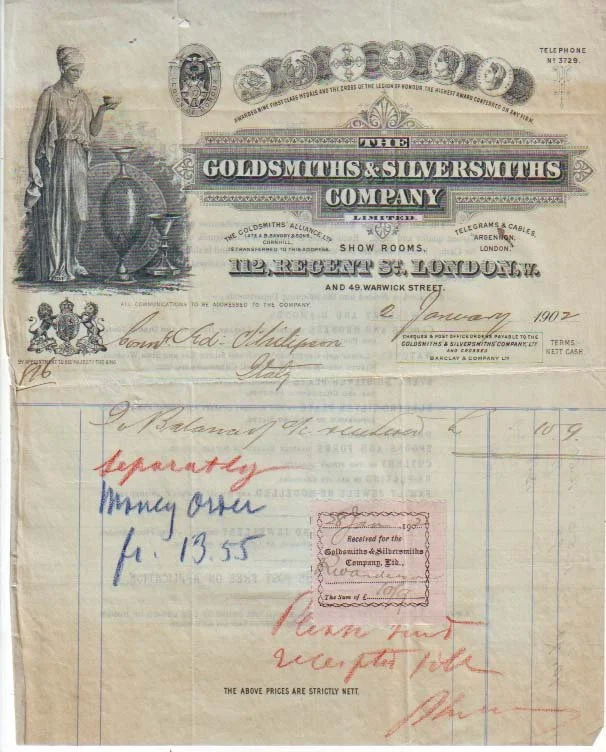 TELEPHONE
No 3729.
AWARDED NINE FIRST CLASS MEDALS AND THE CROSS OF THE LEGION OF HONOUR, THE HIGHEST AWARD CONFERRED ON ANY FIRM.
THE
GOLDSMITHS & SILVERSMITHS
COMPANY
LIMITED.
THE GOLDSMITHS' ALLIANCE, LTD
LATE A.B. SAVORY & SONS,
CORNHILL,
IS TRANSFERRED TO THIS ADDRESS.
TELEGRAMS & CABLES,
ARGENNON,
LONDON.
SHOW ROOMS,
112, REGENT ST. LONDON. W.
AND 49, WARWICK STREET.
ALL COMMUNICATIONS TO BE ADDRESSED TO THE COMPANY
2 January 1902
BY APPOINTMENT TO HIS MAJESTY THE KING
CHEQUES & POST OFFICE ORDERS PAYABLE TO THE
GOLDSMITHS & SILVERSMITHS' COMPANY, LTD
AND CROSSED
BARCLAY & COMPANY LTD
TERMS:
NETT CASH.
Italy
To Balance of a/c rendered £ 10 9
Separatly
Money Order
fr. 13.55
28 Jan 190
Received for the
Goldsmiths & Silversmiths
Company, Ltd.,
The Sum of £ 10/9
Please send
receipted bill
THE ABOVE PRICES ARE STRICTLY NETT.